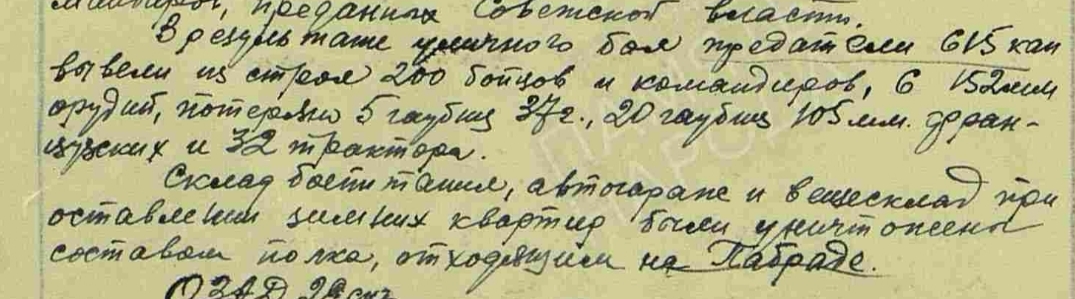 мандиров, преданных Советской власти.
В результате уличного боя предатели 615 кап
вывели из строя 200 бойцов и командиров, 6 152мм
орудий, потеряно 5 гаубиц 37г., 20 гаубиц 105 мм. фран-
цузских и 32 трактора.
Склад боепитания, автогараж и вещесклад при
оставлении зимних квартир были уничтожены
составом полка, отходящим на Пабраде.
ОЗАД 29 ск